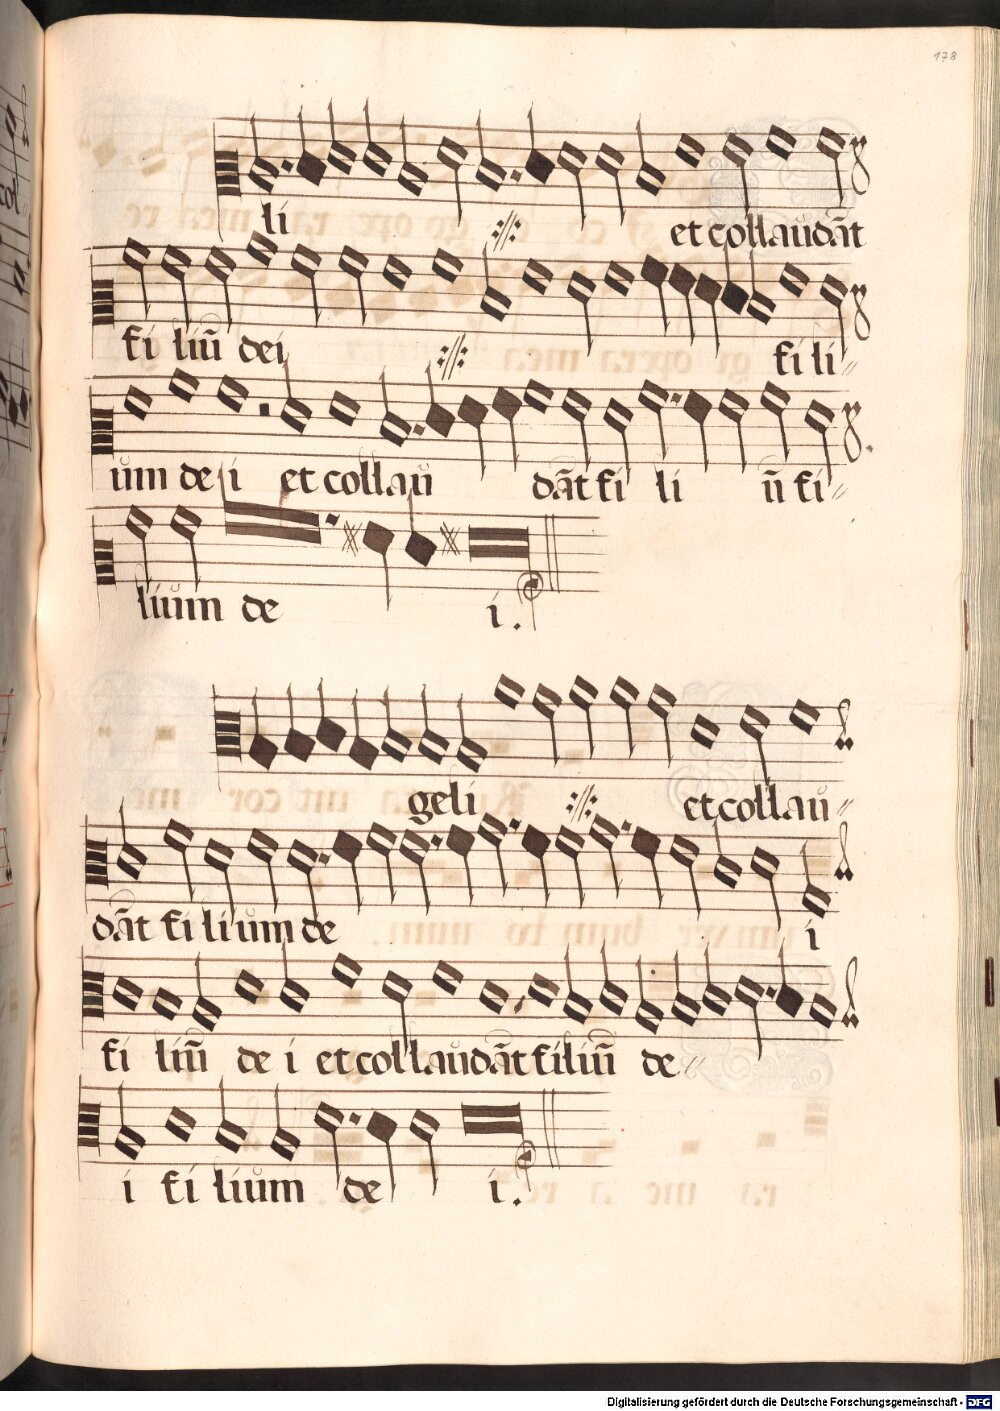 178
li et collaudāt
fi liū dei fi li
um de i et collau dāt fi li ū fi
lium de i.
geli et collau
dāt fi lium de i
fi liū de i et collaudāt filiū de
i fi lium de i.
Digitalisierung gefördert durch die Deutsche Forschungsgemeinschaft - DFG